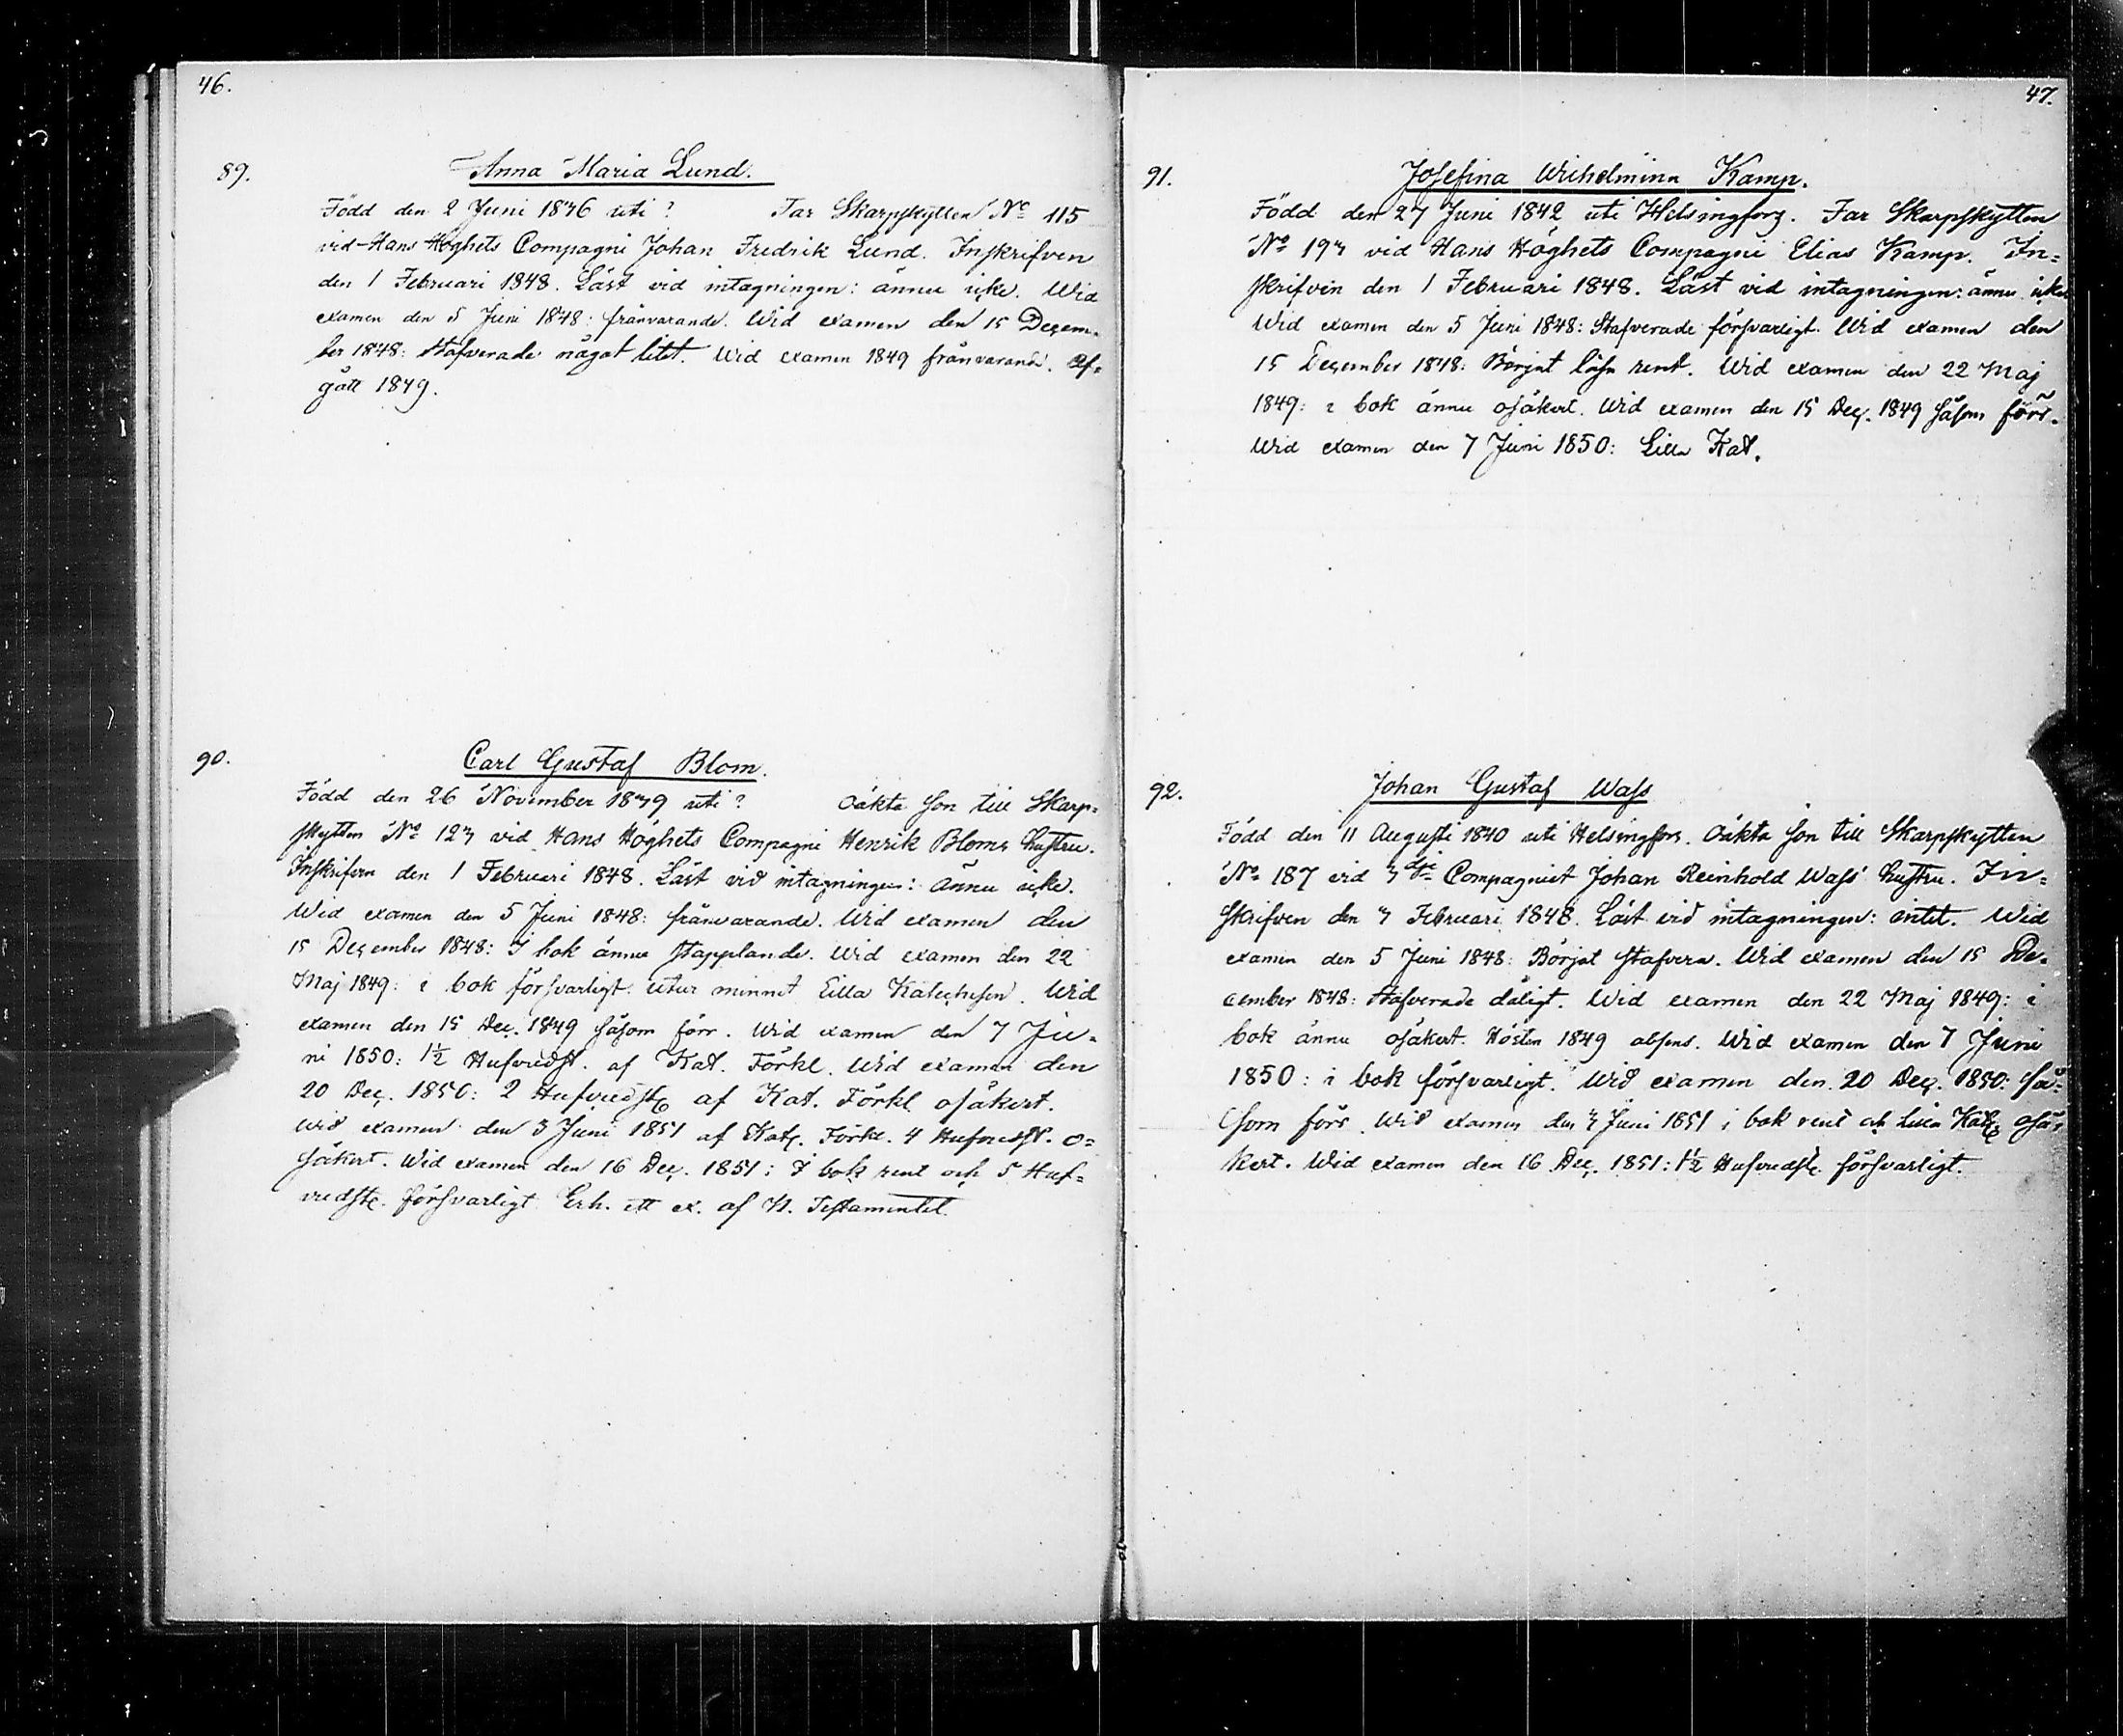 46.
89.
Anna Maria Lund.
Född den 2 Juni 1836 uti ? Far Skarpskytten No 115
vid Hans Höghets Compagni Johan Fredrik Lund. Inskrifven
den 1 Februari 1848. Läst vid intagningen: ännu icke. Wid
examen den 5 Juni 1848: frånvarande. Wid examen den 15 Decem-
ber 1848: Stafverade något litet. Wid examen 1849 frånvarande. Af-
gått 1849.
90.
Carl Gustaf Blom.
Född den 26 November 1839 uti ? Oäkta son till Skarp-
skytten No 123 vid Hans Höghets Compagni Henrik Bloms hustru.
Inskrifven den 1 Februari 1848. Läst vid intagningen: ännu icke.
Wid examen den 5 Juni 1848: frånvarande. Wid examen den
15 December 1848: I bok ännu stapplande. Wid examen den 22
Maj 1849: i bok försvarligt. utur minnet Lilla Katechesen. Wid
examen den 15 Dec. 1849 såsom förr. Wid examen den 7 Ju-
ni 1850: 1½ Hufvudst. af Kat. Förkl. Wid examen den
20 Dec. 1850: 2 Hufvudst. af Kat. Förkl. osäkert.
Wid examen den 3 Juni 1851 af Kat. Förkl. 4 Hufvudst. o-
säkert. Wid examen den 16 Dec. 1851: I bok rent och 5 Huf-
vudst. försvarligt. Erh. ett ex. af N. Testamentet.
47.
91.
Josefina Wilhelmina Kamp.
Född den 27 Juni 1842 uti Helsingfors. Far Skarpskytten
No 193 vid Hans Höghets Compagni Elias Kamp. In-
skrifven den 1 Februari 1848. Läst vid intagningen: ännu icke
Wid examen den 5 Juni 1848: Stafverade försvarligt. Wid examen den
15 December 1848: Börjat läsa rent. Wid examen den 22 Maj
1849: i bok ännu osäkert. Wid examen den 15 Dec. 1849 såsom förr.
Wid examen den 7 Juni 1850: Lilla Kat.
92.
Johan Gustaf Wass
Född den 11 Augusti 1840 uti Helsingfors. Oäkta son till Skarpskytten
No 187 vid 3dje Compagniet Johan Reinhold Wass' hustru. In-
skrifven den 3 Februari 1848. Läst vid intagningen: intet. Wid
examen den 5 Juni 1848: Börjat stafvera. Wid examen den 15 De-
cember 1848: Stafverade dåligt. Wid examen den 22 Maj 1849: i
bok ännu osäkert. Hösten 1849 absens. Wid examen den 7 Juni
1850: i bok försvarligt. Wid examen den 20 Dec. 1850: så-
som förr. Wid examen den 3 Juni 1851 i bok rent och Lilla Kat. osä-
kert. Wid examen den 16 Dec. 1851: 1½ Hufvudst. försvarligt.